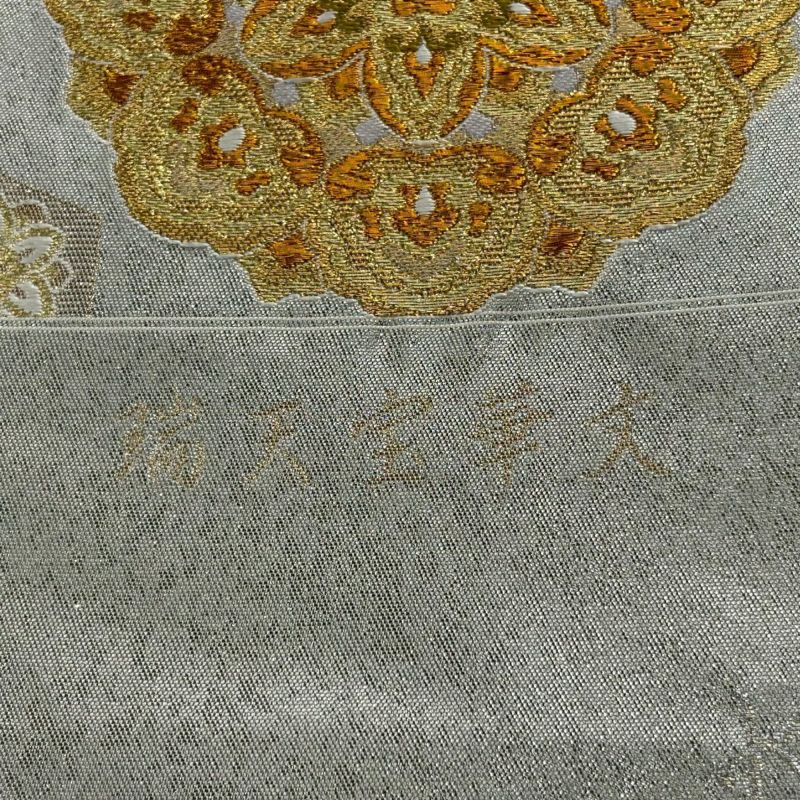 瑞天宝華文